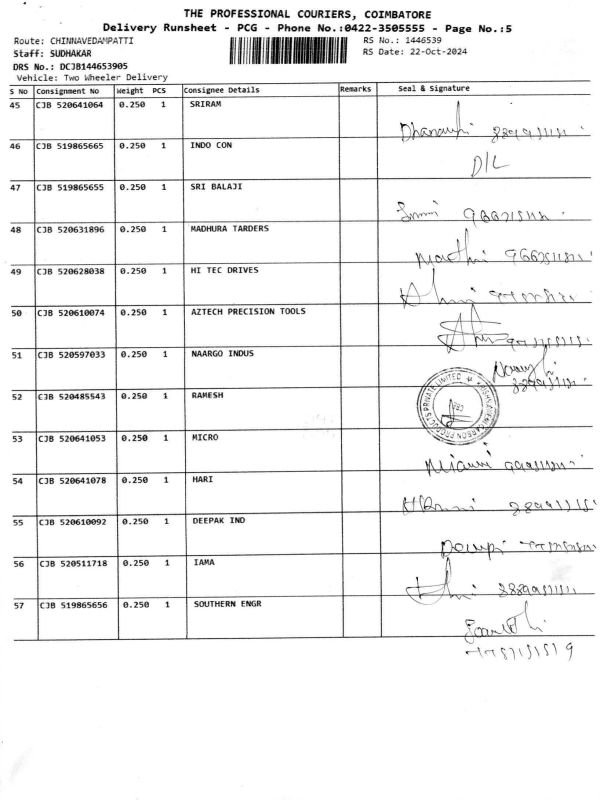 THE PROFESSIONAL COURIERS, COIMBATORE
Delivery Runsheet - PCG - Phone No.:0422-3505555 - Page No.:5
Route: CHINNAVEDAMPATTI RS No.: 1446539
Staff: SUDHAKAR RS Date: 22-Oct-2024
DRS No.: DCJB144653905
Vehicle: Two Wheeler Delivery
S No Consignment No Weight PCS Consignee Details Remarks Seal & Signature
45 CJB 520641064 0.250 1 SRIRAM
46 CJB 519865665 0.250 1 INDO CON
D/L
47 CJB 519865655 0.250 1 SRI BALAJI
48 CJB 520631896 0.250 1 MADHURA TARDERS
49 CJB 520628038 0.250 1 HI TEC DRIVES
50 CJB 520610074 0.250 1 AZTECH PRECISION TOOLS
51 CJB 520597033 0.250 1 NAARGO INDUS
52 CJB 520485543 0.250 1 RAMESH
53 CJB 520641053 0.250 1 MICRO
54 CJB 520641078 0.250 1 HARI
55 CJB 520610092 0.250 1 DEEPAK IND
56 CJB 520511718 0.250 1 IAMA
57 CJB 519865656 0.250 1 SOUTHERN ENGR